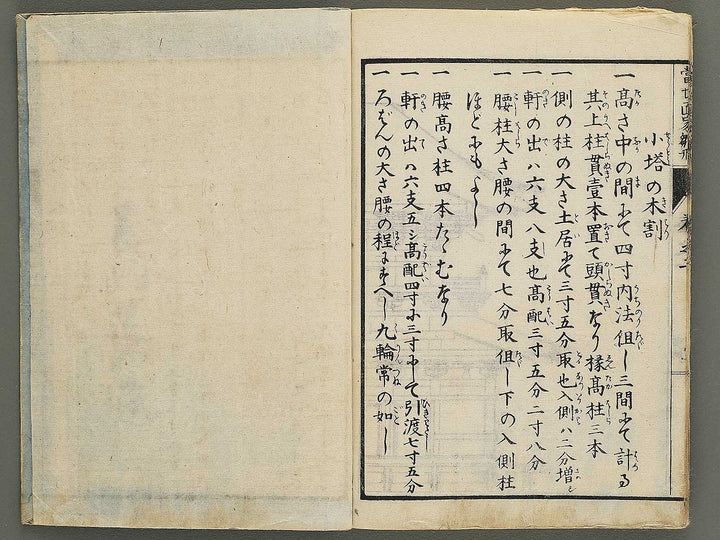 小塔の木割
一高さ中の間にて四寸内法但し三間にて計る
其上柱貫壹本置て頭貫なり椽高柱三本
一側の柱の大さ土居にて三寸五分取也入側ハ二分増
一軒の出ハ六支八支也高配三寸五分二寸八分
一腰柱大さ腰の間にて七分取但し下の入側柱
ほどにもよし
一腰高さ柱四本たゝむなり
一軒の出ハ六支五シ高配四寸に三寸にして引渡七寸五分
一ろばんの大さ腰の程にすへし九輪常の如し